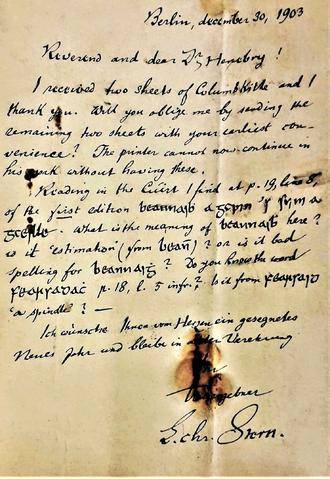 Berlin, december 30, 1903
Reverend and dear Dr Henebry!
I received two sheets of Columbkille and I
thank you. Will you oblige me by sending the
remaining two sheets with your earliest con-
venience? The printer cannot now continue in
his work without having these.
Reading in the Cúirt I find at p. 19, line 5,
of the first edition
What is the meaning of beannaiḃ here?
is it "estimation" (from bean)? or is it bad
spelling for beannaiġ? Do you know the word
p. 18, l. 5 infr.? Is it from fearsaid
"a spindle"? —
Ich wünsche Ihnen vom Herzen ein gesegnetes
Neues Jahr und bleibe in alter Verehrung
Ihr
ergebner
L. Chr. Stern.